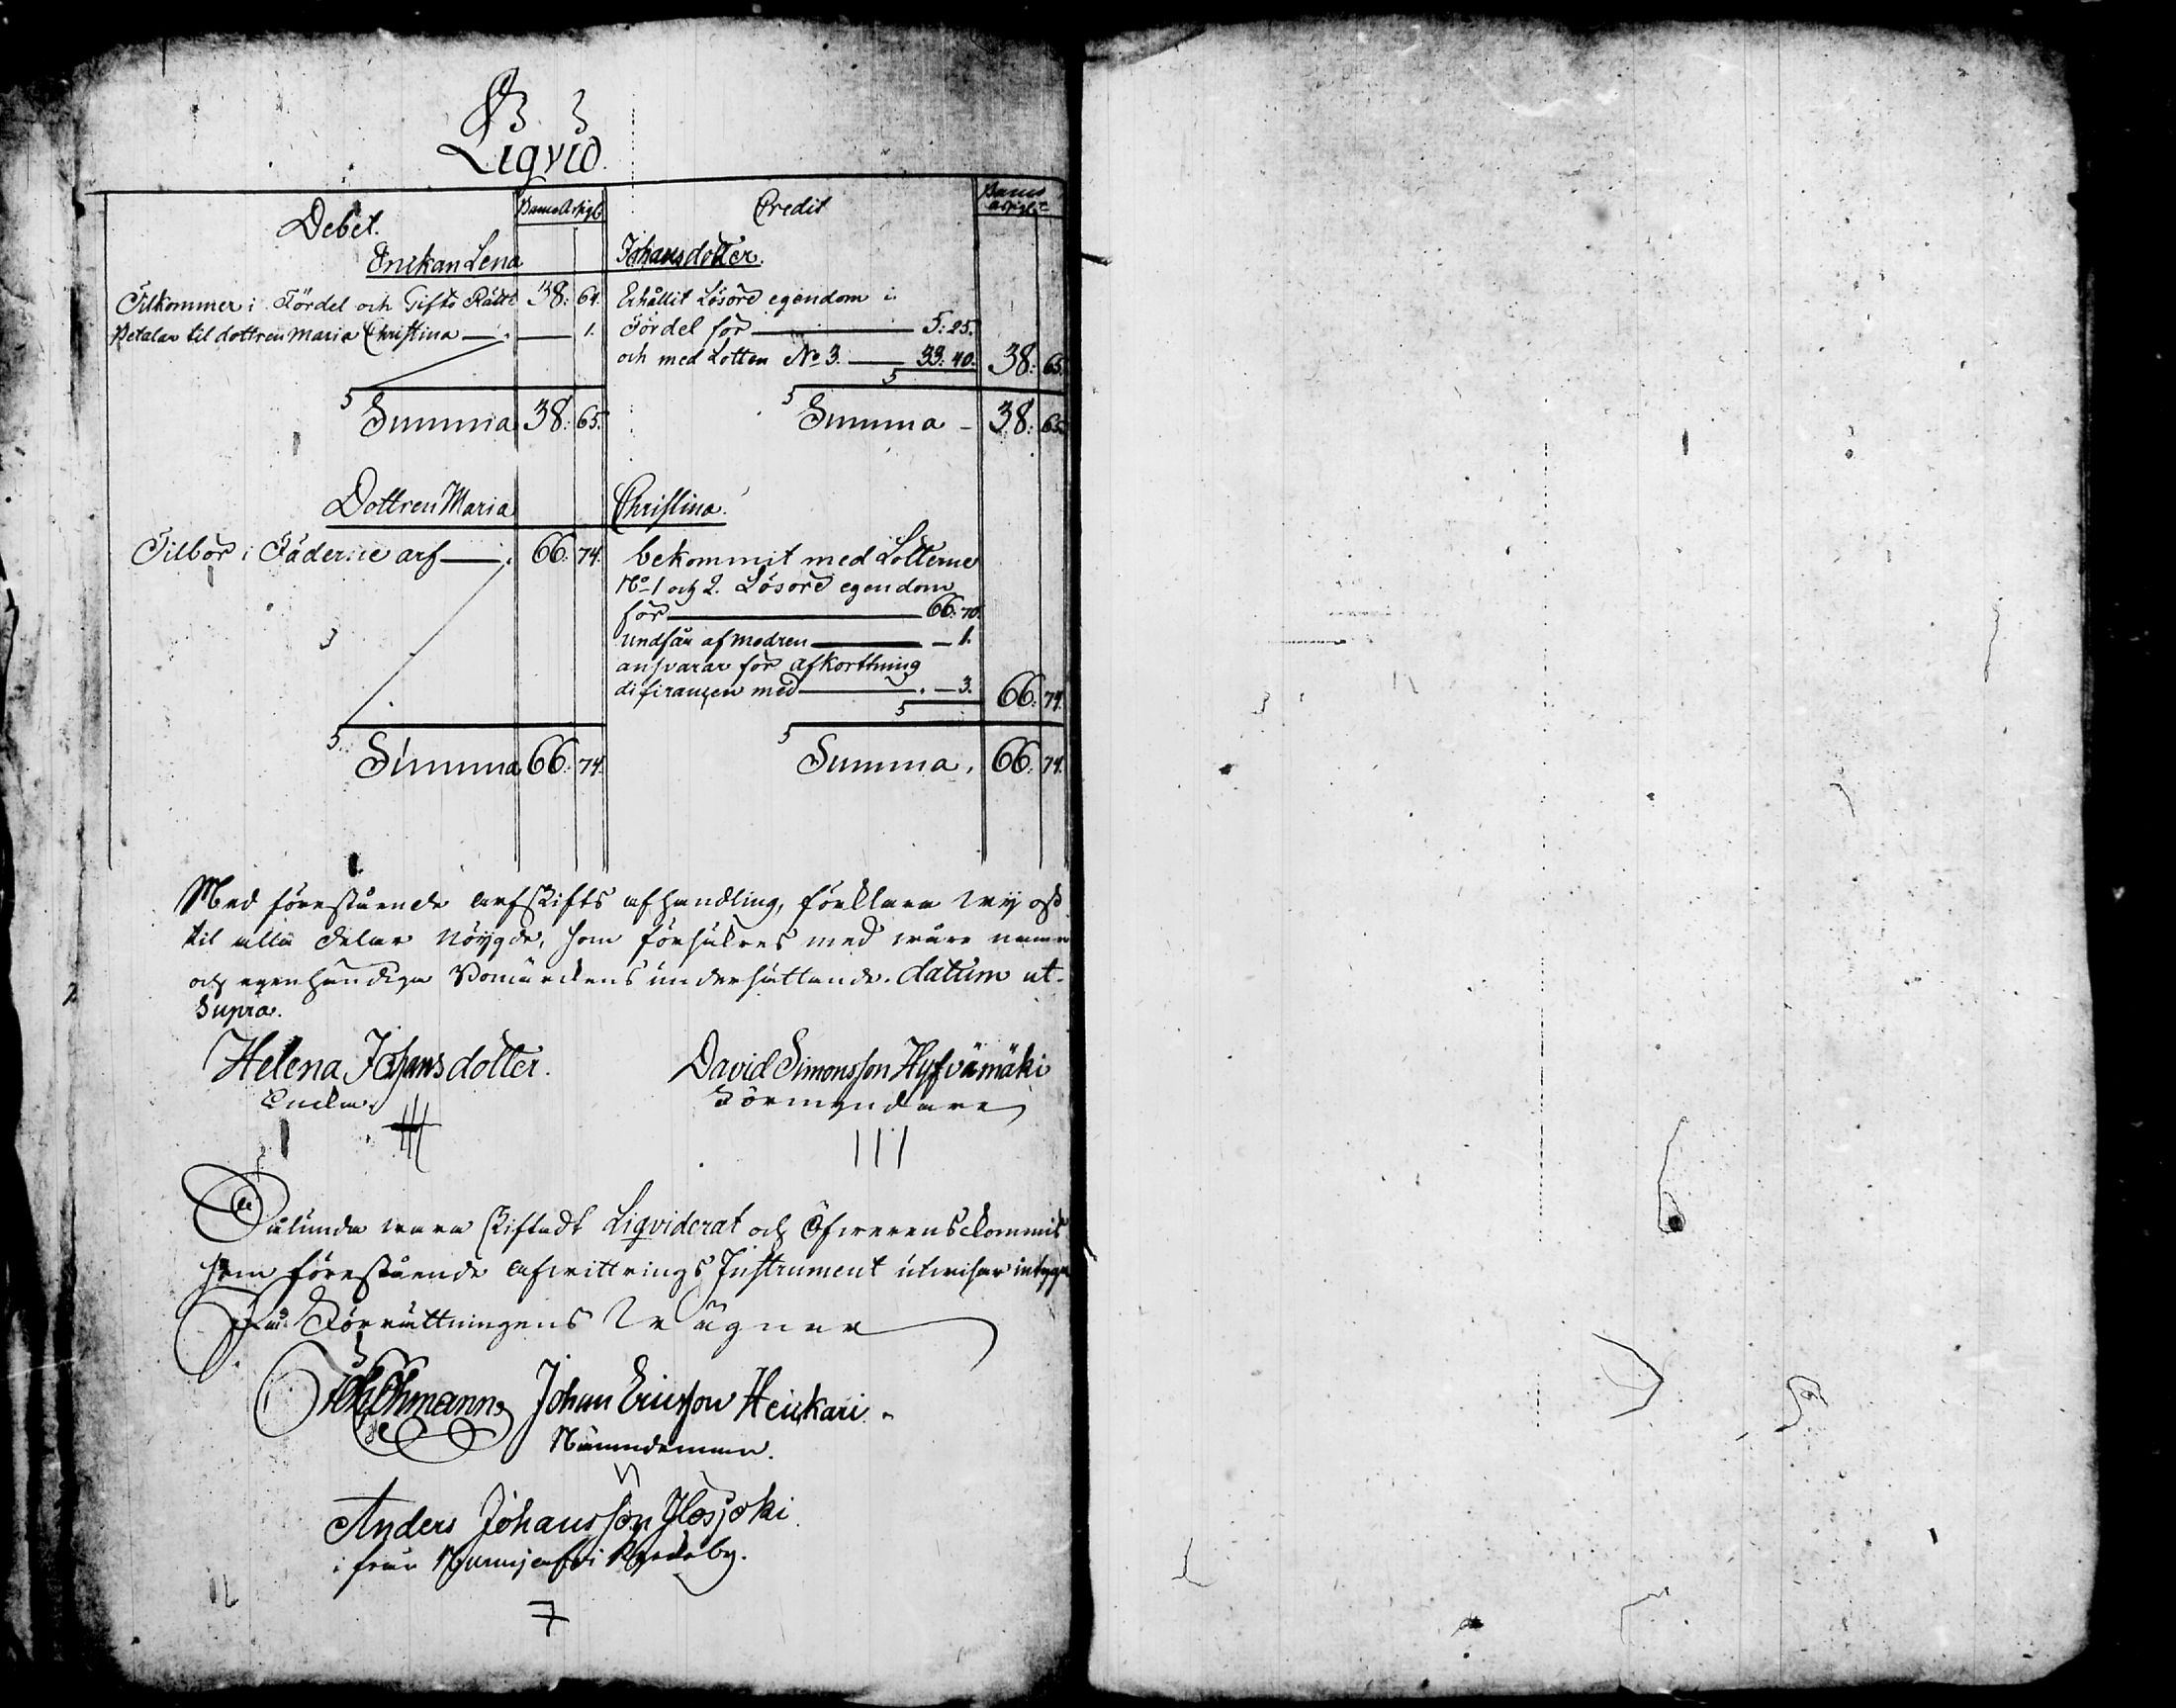 Liqvid.
Debet. Banco Assigt. Credit Banco Assigt.
Enckan Lena Johansdotter.
Tilkommer i Fördel och Gifto Rätt 38: 64. Erhållit Lösöre egendom i
Betalar til dottren Maria Christina — 1. Fördel för — 5: 25.
och med Lotten No 3. — 33: 40. 38: 65.
Summa 38: 65. Summa - 38: 65.
Dottren Maria Christina.
Tilbör i Fäderne arf — 66: 74. bekommit med Lotterne
No 1 och 2. Lösöre egendom
för — 66: 70.
undfår af modren — 1.
ansvarar för afkorttning
difirancen med — 3. 66: 74.
Summa 66: 74. Summa. 66: 74.
Med förestående arfskifts afhandling, förklara wij oss
til alla delar nöygde, som försäkras med wåre namn
och egenhändiga Bomärckens undersättande. datum ut-
Supra.
Helena Johansdotter. David Simonsson Hyfvämäki
Encka. Förmyndare
Sålunda wara skiftadt Liqviderat och Öfwerenskommit
som förestående afwittrings Instrument utwisar intyga
På Förrättningens Wägnar
Johan Ericsson Heickari.
Nämndeman.
Anders Johansson Ylösjoki
ifrån by.